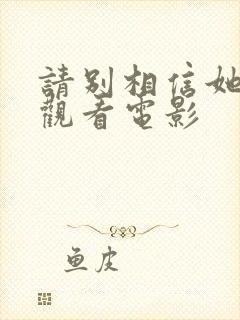 請別相信她
觀看電影
鱼皮